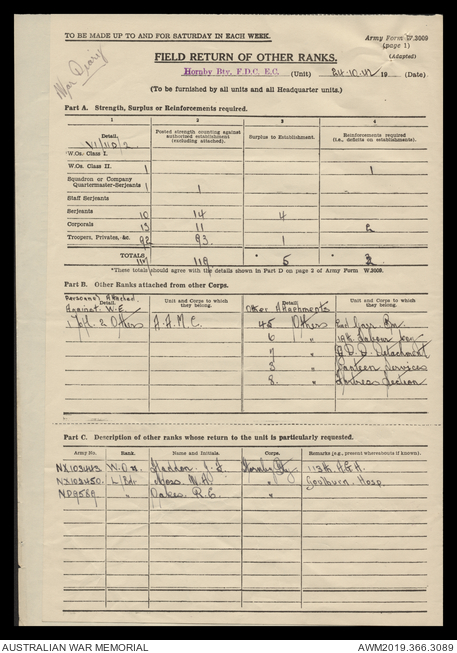 TO BE MADE UP TO AND FOR SATURDAY IN EACH WEEK.
Army Form W.3009
(page 1)
(Adapted)
War Diary
FIELD RETURN OF OTHER RANKS.
Hornby Bty. F.D.C. E.C. (Unit) 24.10.42 19 (Date)
(To be furnished by all units and all Headquarter units.)
Part A. Strength, Surplus or Reinforcements required.
1 2 3 4
Detail. Posted strength counting against authorised establishment (excluding attached). Surplus to Establishment. Reinforcements required (i.e., deficits on establishments).
VI/11D/2
W.Os. Class I.
W.Os. Class II. 1 1
Squadron or Company
Quartermaster-Serjeants 1 1
Staff Serjeants
Serjeants 10 14 4
Corporals 13 11 2
Troopers, Privates, &c. 92 93 1
TOTALS 117 119 * 5 * 3
*These totals should agree with the details shown in Part D on page 2 of Army Form W.3009.
Part B. Other Ranks attached from other Corps.
Personnel Attached Against W.E.
Detail. Unit and Corps to which they belong. Other Attachments Detail. Unit and Corps to which they belong.
1 2 Others A.A.M.C. 45 Others
6 "
7 " Detachment
3 " Canteen Services
8. " Section
Part C. Description of other ranks whose return to the unit is particularly requested.
Army No. Rank. Name and Initials. Corps. Remarks (e.g., present whereabouts if known).
W.O.II. Hornby Bty. 113th A.G.H.
NX102450 L/Bdr Moss " Goulburn Hosp.
" Oakes R.G. "
AUSTRALIAN WAR MEMORIAL
AWM2019.366.3089